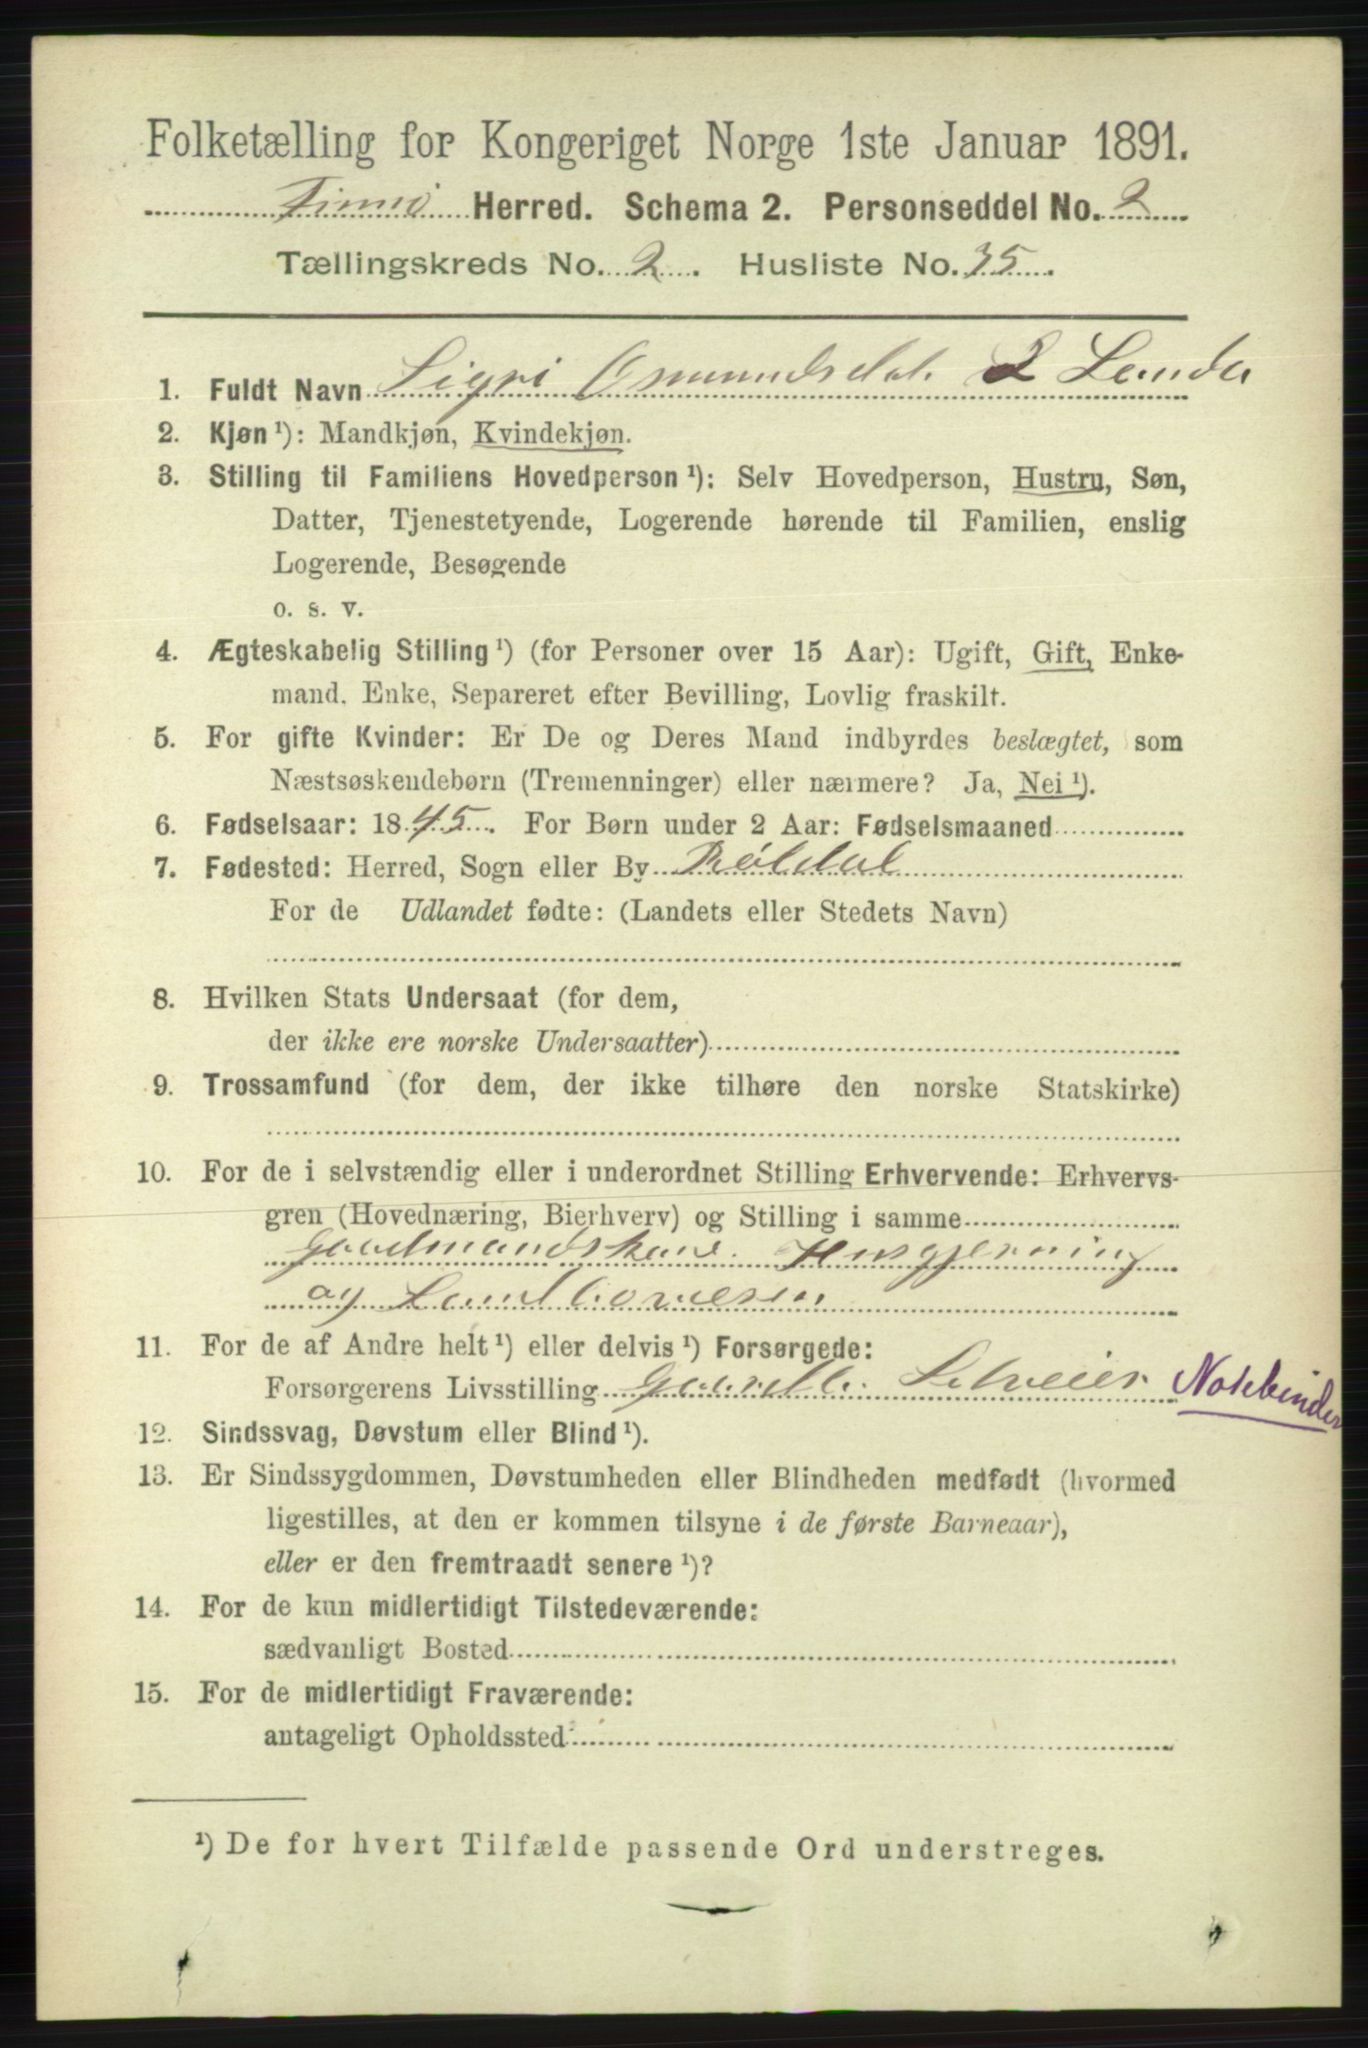 Folketælling for Kongeriget Norge 1ste Januar 1891.
Finnø Herred. Schema 2. Personseddel No. 2
Tællingskreds No. 2. Husliste No. 35.
1. Fuldt Navn Sigri Osmundsdat.
2. Kjøn ¹): Mandkjøn, Kvindekjøn.
3. Stilling til Familiens Hovedperson ¹): Selv Hovedperson, Hustru, Søn,
Datter, Tjenestetyende, Logerende hørende til Familien, enslig
Logerende, Besøgende
o. s. v.
4. Ægteskabelig Stilling ¹) (for Personer over 15 Aar): Ugift, Gift, Enke-
mand, Enke, Separeret efter Bevilling, Lovlig fraskilt.
5. For gifte Kvinder: Er De og Deres Mand indbyrdes beslægtet, som
Næstsøskendebørn (Tremenninger) eller nærmere? Ja, Nei ¹).
6. Fødselsaar: 1845. For Børn under 2 Aar: Fødselsmaaned
7. Fødested: Herred, Sogn eller By Røldal
For de Udlandet fødte: (Landets eller Stedets Navn)
8. Hvilken Stats Undersaat (for dem,
der ikke ere norske Undersaatter)
9. Trossamfund (for dem, der ikke tilhøre den norske Statskirke)
10. For de i selvstændig eller i underordnet Stilling Erhvervende: Erhvervs-
gren (Hovednæring, Bierhverv) og Stilling i samme
Gaardmandskone. Husgjerning
og
11. For de af Andre helt ¹) eller delvis ¹) Forsørgede:
Forsørgerens Livsstilling Gaardbr. Selveier Notebinder
12. Sindssvag, Døvstum eller Blind ¹).
13. Er Sindssygdommen, Døvstumheden eller Blindheden medfødt (hvormed
ligestilles, at den er kommen tilsyne i de første Barneaar),
eller er den fremtraadt senere ¹)?
14. For de kun midlertidigt Tilstedeværende:
sædvanligt Bosted
15. For de midlertidigt Fraværende:
antageligt Opholdssted
¹) De for hvert Tilfælde passende Ord understreges.